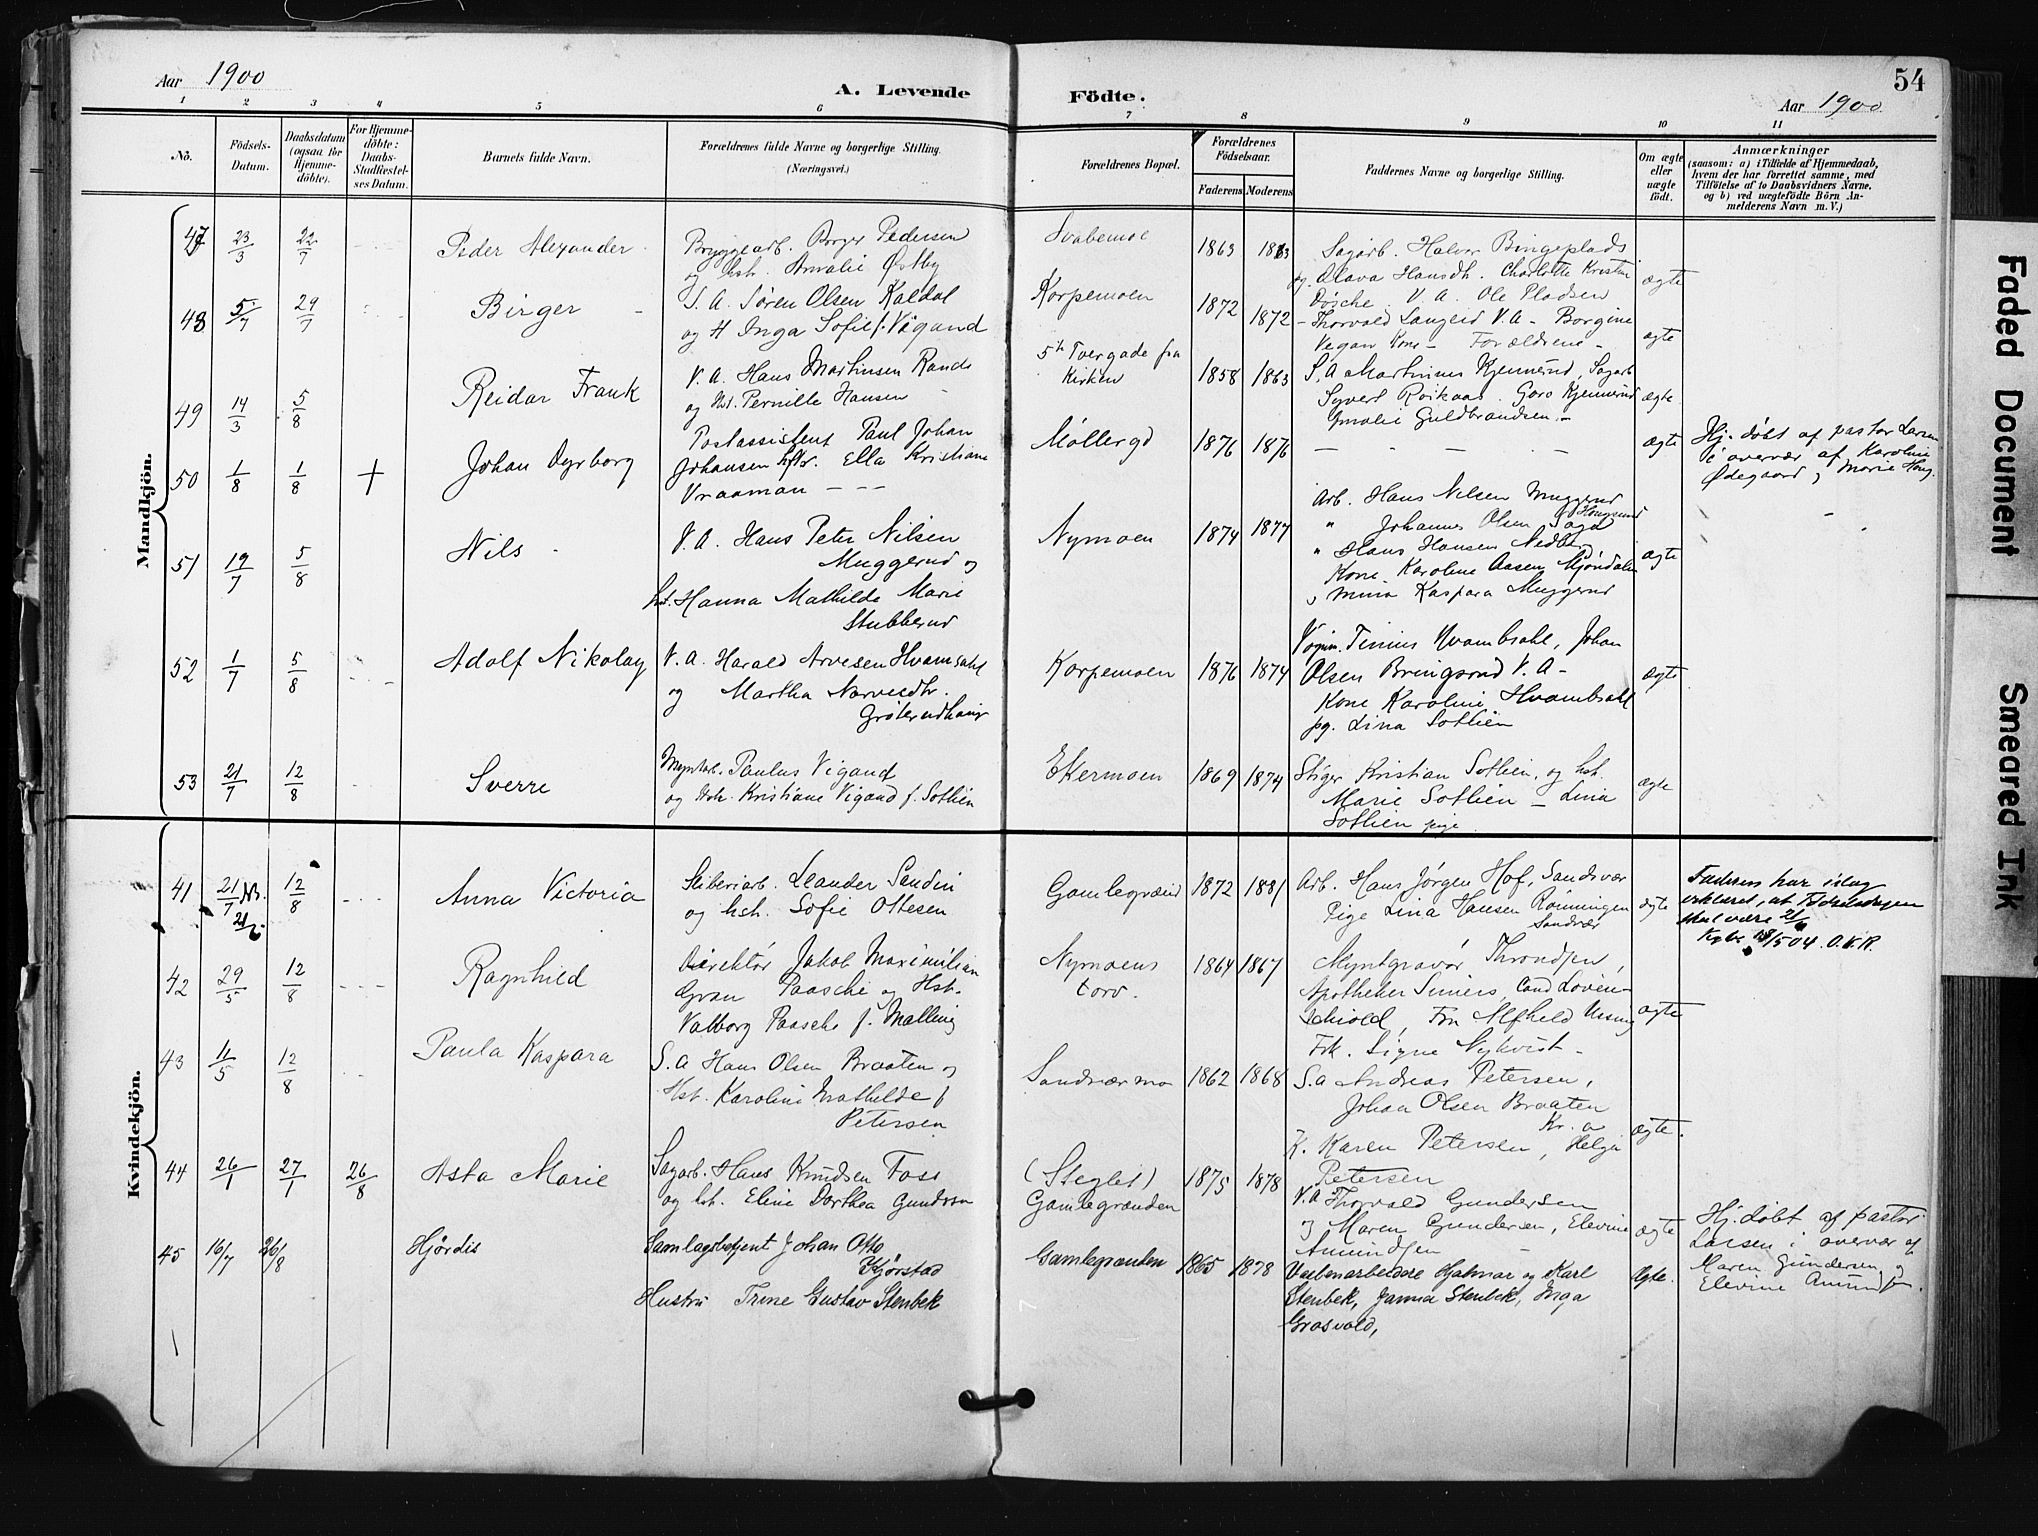 Aar 1900
A. Levende
Födte.
Aar 1900
54
1 2 3 4 5 6 7 8 9 10 11
No.
Födsels-Datum.
Daabsdatum (ogsaa for Hjemme-döbte).
For Hjemme-döbte: Daabs-Stadfæstel-ses Datum.
Barnets fulde Navn.
Forældrenes fulde Navne og borgerlige Stilling.
(Næringsvei.)
Forældrenes Bopæl.
Forældrenes Födselsaar.
Faderens Moderens
Faddernes Navne og borgerlige Stilling.
Om ægte eller uægte födt.
Anmærkninger
(saasom: a) i Tilfælde af Hjemmedaab, hvem der har forrettet samme, med Tilföielse af to Daabsvidners Navne, og b) ved uægtefödte Börn Anmelderens Navn m. V.)
Mandkjön.
47 23/3 22/7 Peder Alexander
Bryggearb. Borger Pedersen
og hst. Amalie Østby
Svabemoe 1863 1863
Sagarb. Halvor Bingeplads
og Olava Hansdh. Charlotte Kristin
Døsche. V. A. Ole Pladsen
ægte
48 5/7 29/7 Birger
S. A. Søren Olsen Kaldal
og H Inga Sofie f. Vigand
Korpemoen 1872 1872
Thorvald Langeid V.A - Borgine
Vegan Kone - Forældrene -
ægte
49 14/3 5/8 Reidar Frank
V. A. Hans Martinsen Rands
og Hst. Pernille Hansen
5te Tvergade fra
Kirken 1858 1863
S. A Martinus Kjennerud, Sagarb
Syvert Roikaas. Goro Kjennerud
Amalie Guldbrandsen -
ægte
50 1/8 1/8 + Johan Dyrborg
Postassistent Paul Johan
Johansen hstr. Ella Kristiane
Vraaman - - -
Møllergd 1876 1876 - - - -
ægte
Hj. døbt af pastor Larsen
i overvær af Karoline
Ødegaard og Marie Haug.
51 19/7 5/8 Nils
V. A. Hans Peter Nilsen
Muggerud og
hst. Hanna Mathilde Marie
Stubberud
Nymoen 1874 1877
Arb. Hans Nilsen Muggerud
" Johannes Olsen Hougsund
" Hans Hansen Nedberg
Kone Karoline Aasen Mjøndalen
og Mina Kaspara Muggerud
ægte
52 1/7 5/8 Adolf Nikolay
V. A. Harald Arvesen Hvamsahl
og Martha Narvesdtr.
Korpemoen 1876 1874
Tinius Hvambsahl, Johan
Olsen Bringsrud V. A -
Kone Karoline Hvambsahl
pg. Lina Sothien
ægte
53 21/7 12/8 Sverre
Myntarb. Paulus Vigand
og Hstr. Kristiane Vigand f. Sothien
Ekermoen 1869 1874
Stiger Kristian Sothien, og hst.
Marie Sothien - Lina
Sothien pige.
ægte
Kvindekjön.
41 21/7 NB. 21/6 12/8 Anna Victoria
Sliberiarb. Leander Sandin
og hst. Sofie Ottesen
Gamlegrænd 1872 1881
Arb. Hans Jørgen Hof, Sandsvær
Pige Lina Hansen Rønningen
Sandsvær
ægte
Faderen har idag
erklæret, at Fødselsdagen
skal være 21/6
Kgbg. 18/5 04. O.K.R.
42 29/5 12/8 Ragnhild
Direktør Jakob Maximilian
Gran Paasche og Hst.
Valborg Paasche f. Malling
Nymoens
torv. 1864 1867
Myntgravør Throndsen,
Apotheker Siniers, Cand Løven-
skiold, Fru Alfhild Ursing
Frk. Signe Nykvist -
ægte
43 11/5 12/8 Paula Kaspara
S. A Hans Olsen Braaten og
Hst. Karoline Mathilde f
Petersen
Sandsværmo 1862 1868
S. a Andreas Petersen,
Johan Olsen Braaten
Kr. a
K. Karen Petersen, Helga
Petersen
ægte.
44 26/1 27/1 26/8 Asta Marie
Sagarb. Hans Knudsen Foss
og hst. Eline Dorthea Gundersen
(Steglet)
Gamlegrænden 1875 1878
V. A Thorvald Gundersen
og Maren Gundersen, Elevine
Amundsen
ægte
Hj. døbt af pastor
Larsen i overvær af
Maren Gundersen og
Elevine Amundsen.
45 16/7 26/8 Hjørdis
Samlagsbetjent Johan Otto
Kjørstad
Hustru Trine Gustav Stenbek
Gamlegrænden 1865 1878
Vaabenarbeidere Hjalmar og Karl
Stenbek, Janna Stenbek, Inga
Grosvold,
Ægte.
Faded Document
Smeared Ink